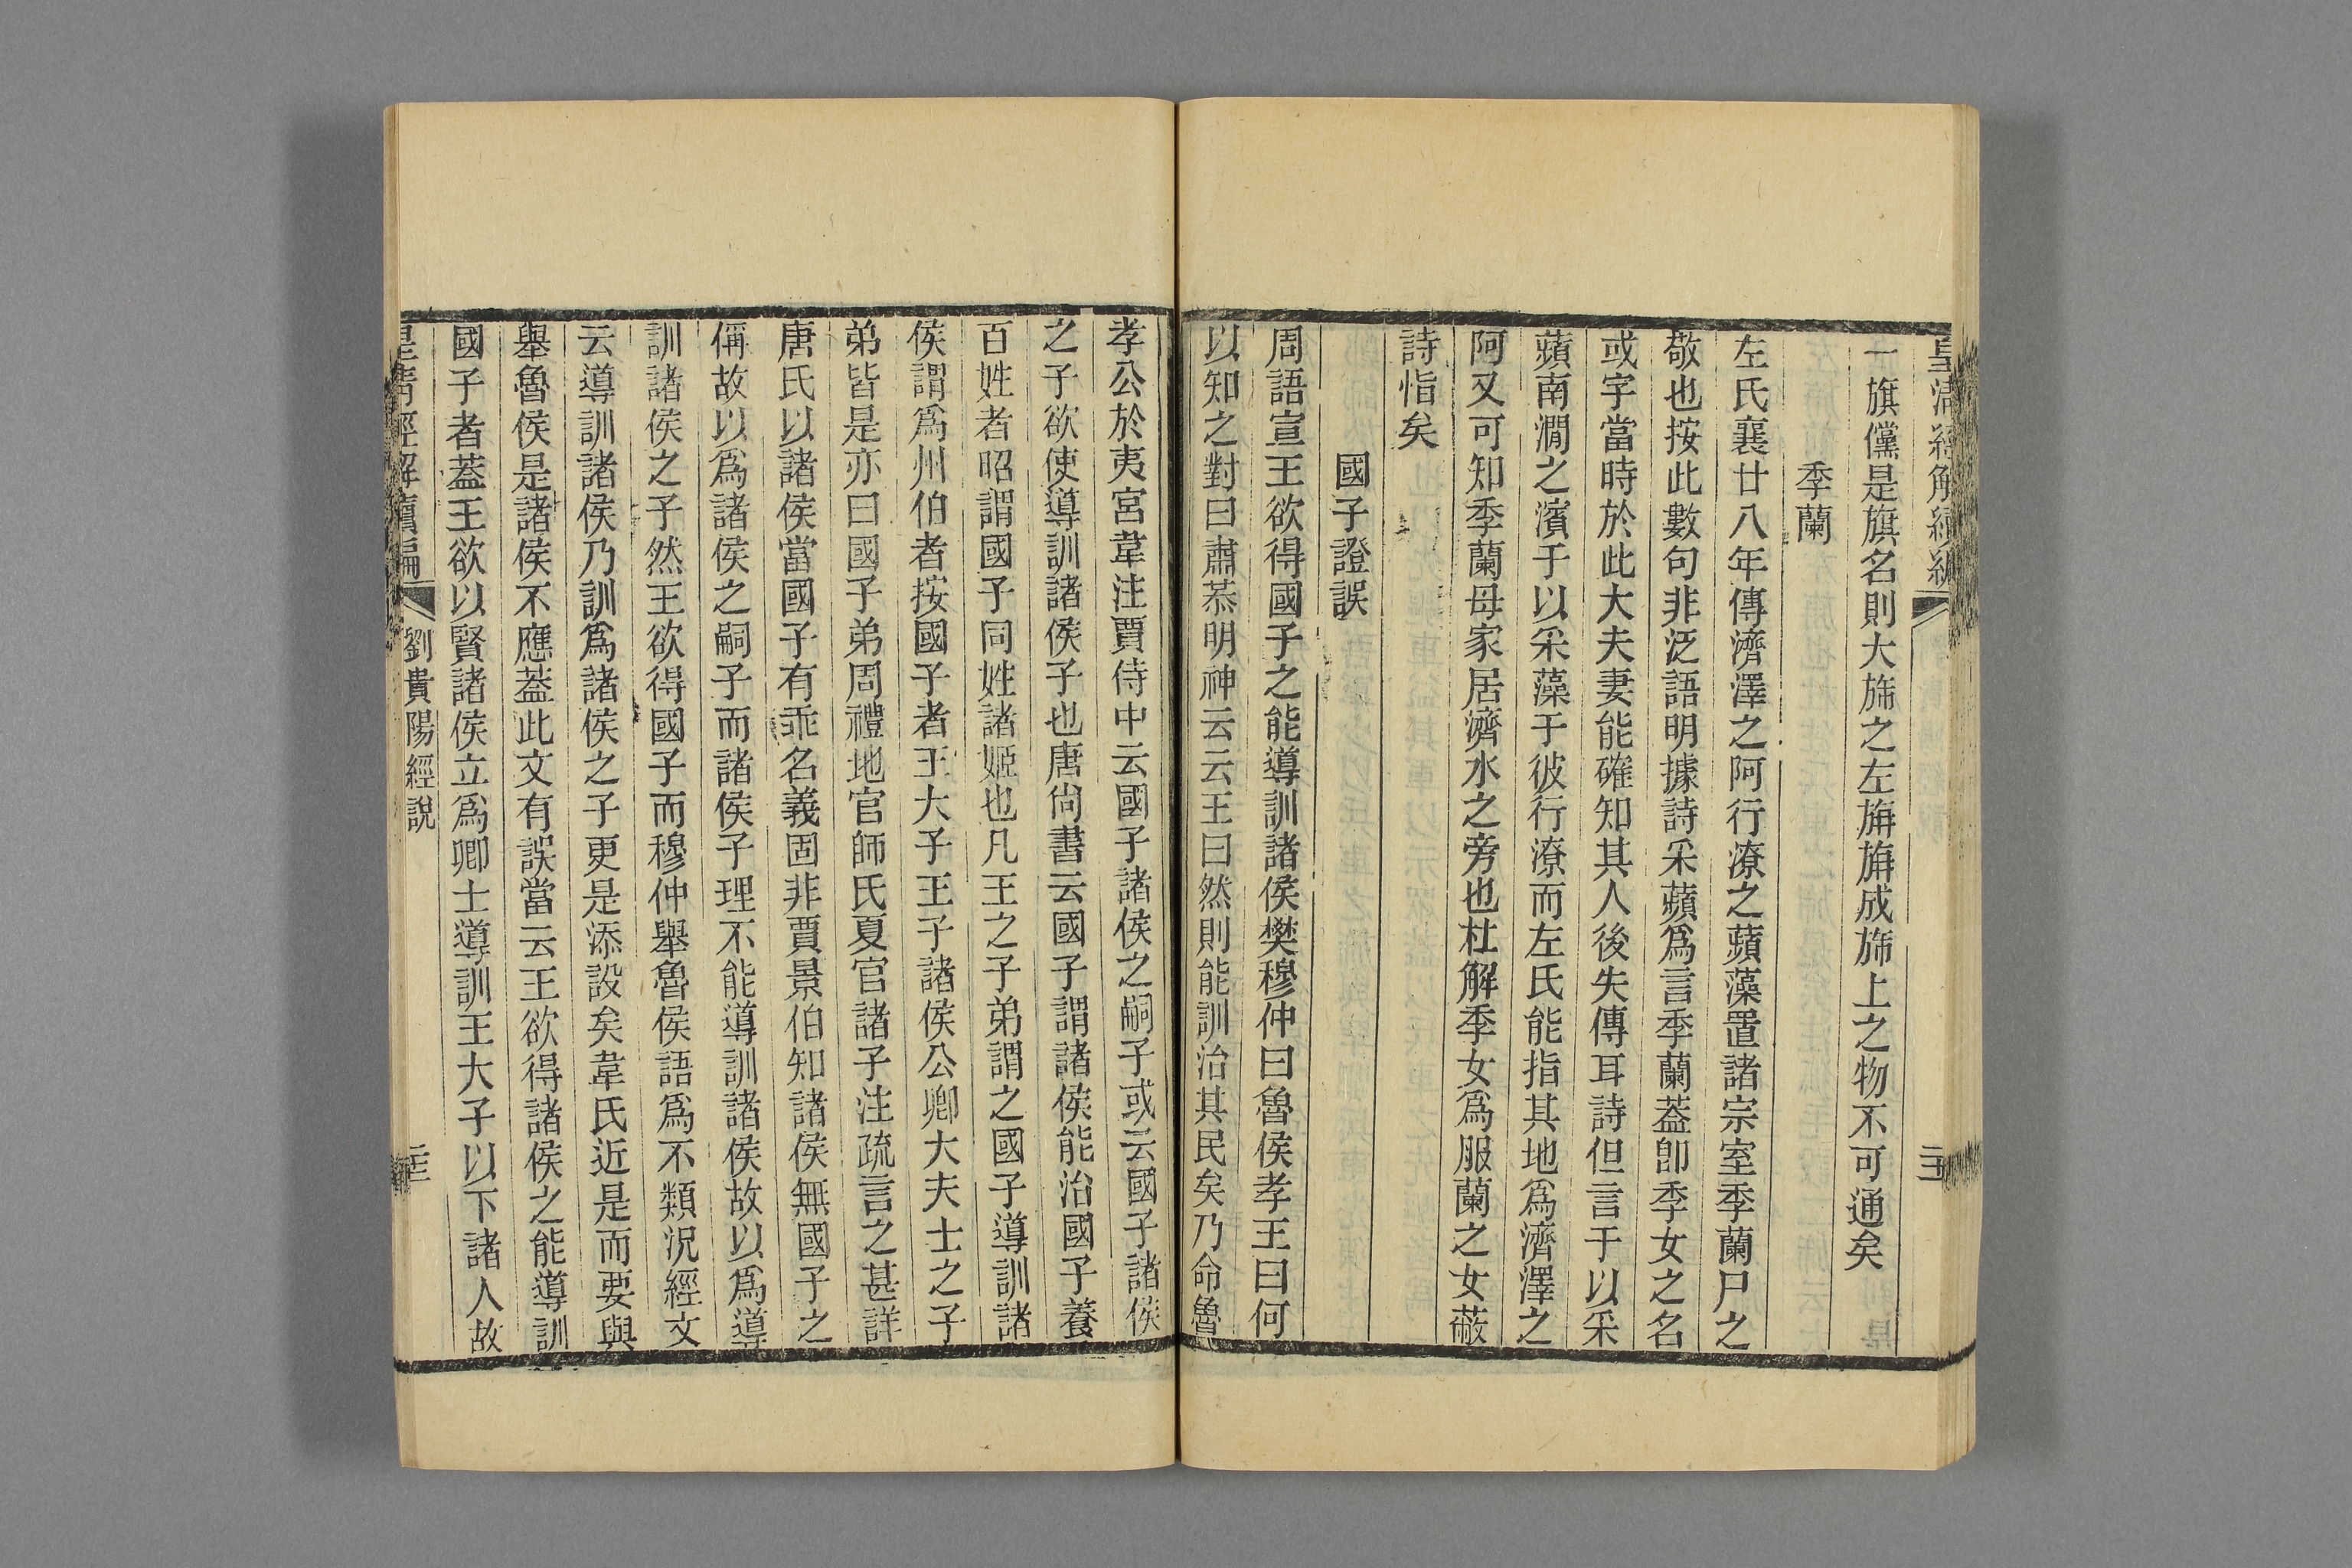 皇清經解續編
一旗儻是旗名則大旆之左旃旃成旆上之物不可通矣
季蘭
左氏襄廿八年傳濟澤之阿行潦之蘋藻置諸宗室季蘭尸之
敬也按此數句非泛語明據詩采蘋爲言季蘭蓋卽季女之名
或字當時於此大夫妻能確知其人後失傳耳詩但言于以采
蘋南澗之濱于以采藻于彼行潦而左氏能指其地爲濟澤之
阿又可知季蘭母家居濟水之旁也杜解季女爲服蘭之女蔽
詩恉矣
國子證誤
周語宣王欲得國子之能導訓諸侯樊穆仲曰魯侯孝王曰何
以知之對曰肅恭明神云云王曰然則能訓治其民矣乃命魯
孝公於夷宮韋注賈侍中云國子諸侯之嗣子或云國子諸侯
之子欲使導訓諸侯子也唐尙書云國子謂諸侯能治國子養
百姓者昭謂國子同姓諸姬也凡王之子弟謂之國子導訓諸
侯謂爲州伯者按國子者王大子王子諸侯公卿大夫士之子
弟皆是亦曰國子弟周禮地官師氏夏官諸子注疏言之甚詳
唐氏以諸侯當國子有乖名義固非賈景伯知諸侯無國子之
偁故以爲諸侯之嗣子而諸侯子理不能導訓諸侯故以爲導
訓諸侯之子然王欲得國子而穆仲舉魯侯語爲不類況經文
云導訓諸侯乃訓爲諸侯之子更是添設矣韋氏近是而要與
舉魯侯是諸侯不應蓋此文有誤當云王欲得諸侯之能導訓
國子者蓋王欲以賢諸侯立爲卿士導訓王大子以下諸人故
皇清經解續編 劉貴陽經說